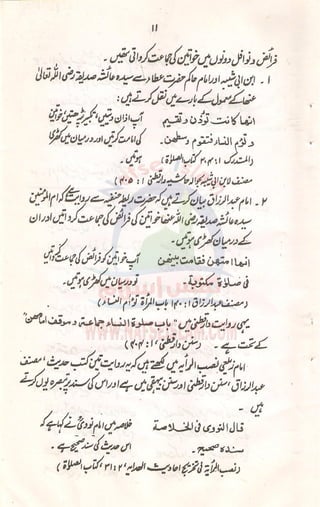 ۱۱
فرائض و نوافل دونوں میں خواتین کی جماعت کرواتی تھیں۔
۱۔ ابن ابی شیبہ اور امام حاکم حضرت عطاء سے سیدہ عائشہ صدیقہ رضی اللہ تعالیٰ
عنہا کے معمول کے بارے میں نقل کرتے ہیں:
انها کانت تؤذن و تقیم آپ اذان دیتیں، تکبیر پڑھتیں خواتین
و تؤم النساء فتقوم وسطهن۔ کی امامت کرتیں اور درمیان میں کھڑی
(المستدرک ۱: ۲۰۴، کتاب الصلاۃ) ہوتیں۔
مصنف لابن ابی شیبہ بحوالہ حاشیہ دارقطنی ۱: ۴۰۵)
۲۔ امام عبدالرزاق بیان کرتے ہیں کہ حضرت ریطہ حنفیہ سے روایت ہے کہ ام المؤمنین
سیدہ عائشہ صدیقہ رضی اللہ عنہا خواتین کی فرائض کی جماعت کرواتیں اور ان
کے درمیان کھڑی ہوتیں۔
انها امتهن فقامت بینهن آپ خواتین کو فرائض کی جماعت کرواتیں
فی صلاة مکتوبة۔ تو درمیان میں کھڑی ہوتیں۔
(مصنف عبدالرزاق، ۱: باب المرأة تؤم النساء)
یہی روایت دارقطنی میں "باب صلوة النساء جماعة و موقف امامهن"
کے تحت ہے۔ (سنن دارقطنی، ۱: ۴۰۴)
امام زیلعی نصب الرایہ میں لکھتے ہیں کہ یہ روایت تین کتب حدیث، مصنف
عبدالرزاق، سنن دارقطنی اور سنن بیہقی میں ہے اور اس کی سند پر تبصرہ یوں کرتے
ہیں
قال النووی فی الخلاصة خلاصہ میں امام نووی نے کہا ہے کہ
سنده صحیح۔ اس حدیث کی سند صحیح ہے۔
(نصب الرایة فی تخریج احادیث الهدایه ۲: ۳۱، کتاب الصلاة)